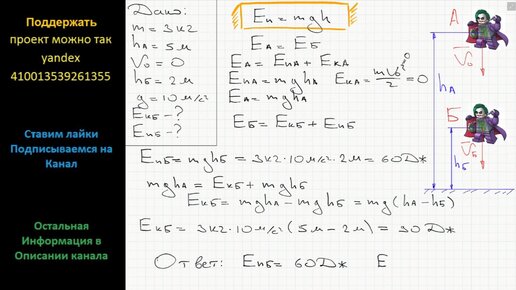 Поддержать
проект можно так
yandex
410013539261355
Ставим лайки
Подписываемся на
Канал
Остальная
Информация в
Описании канала
Дано:
m = 3кг
hА = 5м
V₀ = 0
hБ = 2м
g = 10 м/с²
EкБ - ?
EпБ - ?
Eп = mgh
EА = EБ
EА = EпА + EкА
EпА = mghА EкА = mV₀²/2 = 0
EА = mghА
EБ = EкБ + EпБ
EпБ = mghБ = 3кг·10м/с²·2м = 60Дж
mghА = EкБ + mghБ
EкБ = mghА - mghБ = mg(hА - hБ)
EкБ = 3кг·10м/с²(5м - 2м) = 90Дж
Ответ: EпБ = 60Дж E
А
V₀
hА
Б
VБ
hБ